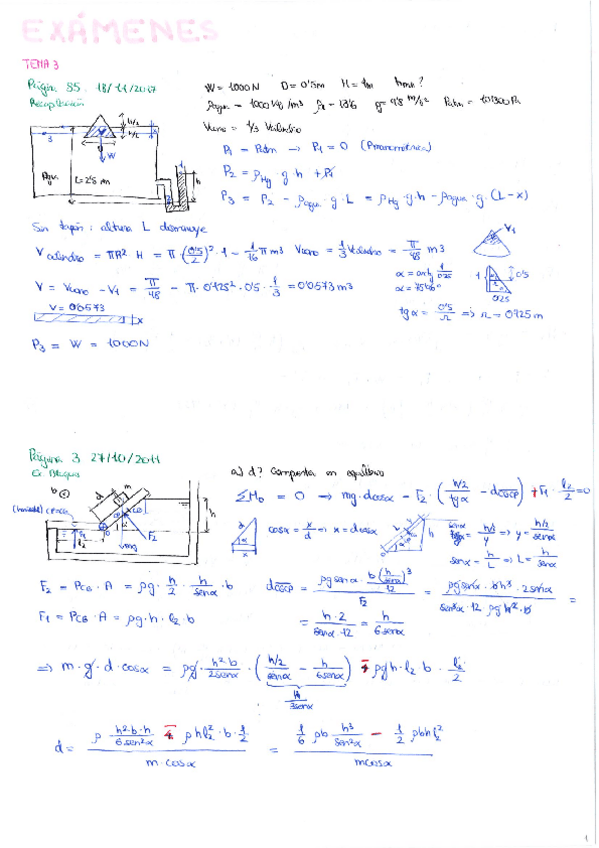 EXÁMENES
TEMA 3
Página 85. 18/11/2017
Recapitulación
W = 1000N D = 0'5m H = 1m hmin?
ρagua = 1000 kg/m³ ρr = 13'6 g = 9'8 m/s² Patm = 101300 Pa
Vcono = 1/3 Vcilindro
P₁ = Patm → P₁ = 0 (Manométrica)
P₂ = ρHg · g · h + P₁
P₃ = P₂ - ρagua · g · L = ρHg · g · h - ρagua · g · (L-x)
h/2
h/2
W
L = 2'5 m
h
3
1
2
Sin tapón: altura L disminuye
V cilindro = πR² H = π · (0'5/2)² · 1 = 1/16 π m³ Vcono = 1/3 Vcilindro = π/48 m³
V₁
V = Vcono - V₁ = π/48 - π · 0'125² · 0'5 · 1/3 = 0'0573 m³
α = arctg 1/0'25
α = 75'96°
1
0'5
0'25
V = 0'0573
x
tg α = 0'5/r ⇒ r = 0'125 m
P₃ = W = 1000N
Página 3 27/10/2011
Ej. Bloques
a) d? Compuerta en equilibrio
ΣM₀ = 0 → mg · d cosα - F₂ · (h/2 / tg α - dCGCP) + F₁ · l₂/2 = 0
b
m
d
F₂
mg
h
cosα = x/d ⇒ x = d cosα
senα = h/2 / y ⇒ y = h/2 / senα
senα = h/L ⇒ L = h/senα
F₂ = PCG · A = ρg · h/2 · h/senα · b
dCGCP = ρg senα · b (h/senα)³ / 12 / F₂ = ρg senα · b h³ · 2 senα / sen³α · 12 ρg h² · b =
F₁ = PCG · A = ρg · h · l₂ · b
= h · 2 / senα · 12 = h / 6 senα
⇒ m · g · d · cosα = ρg · h² b / 2senα · (h/2 / senα - h / 6senα) ∓ ρg h · l₂ b · l₂/2
h / 3senα
d = ρ h² · b · h / 6 sen²α ∓ ρ h l₂² · b · 1/2 / m · cosα = 1/6 ρb h³/sen²α - 1/2 ρbh l₂² / m cosα
1